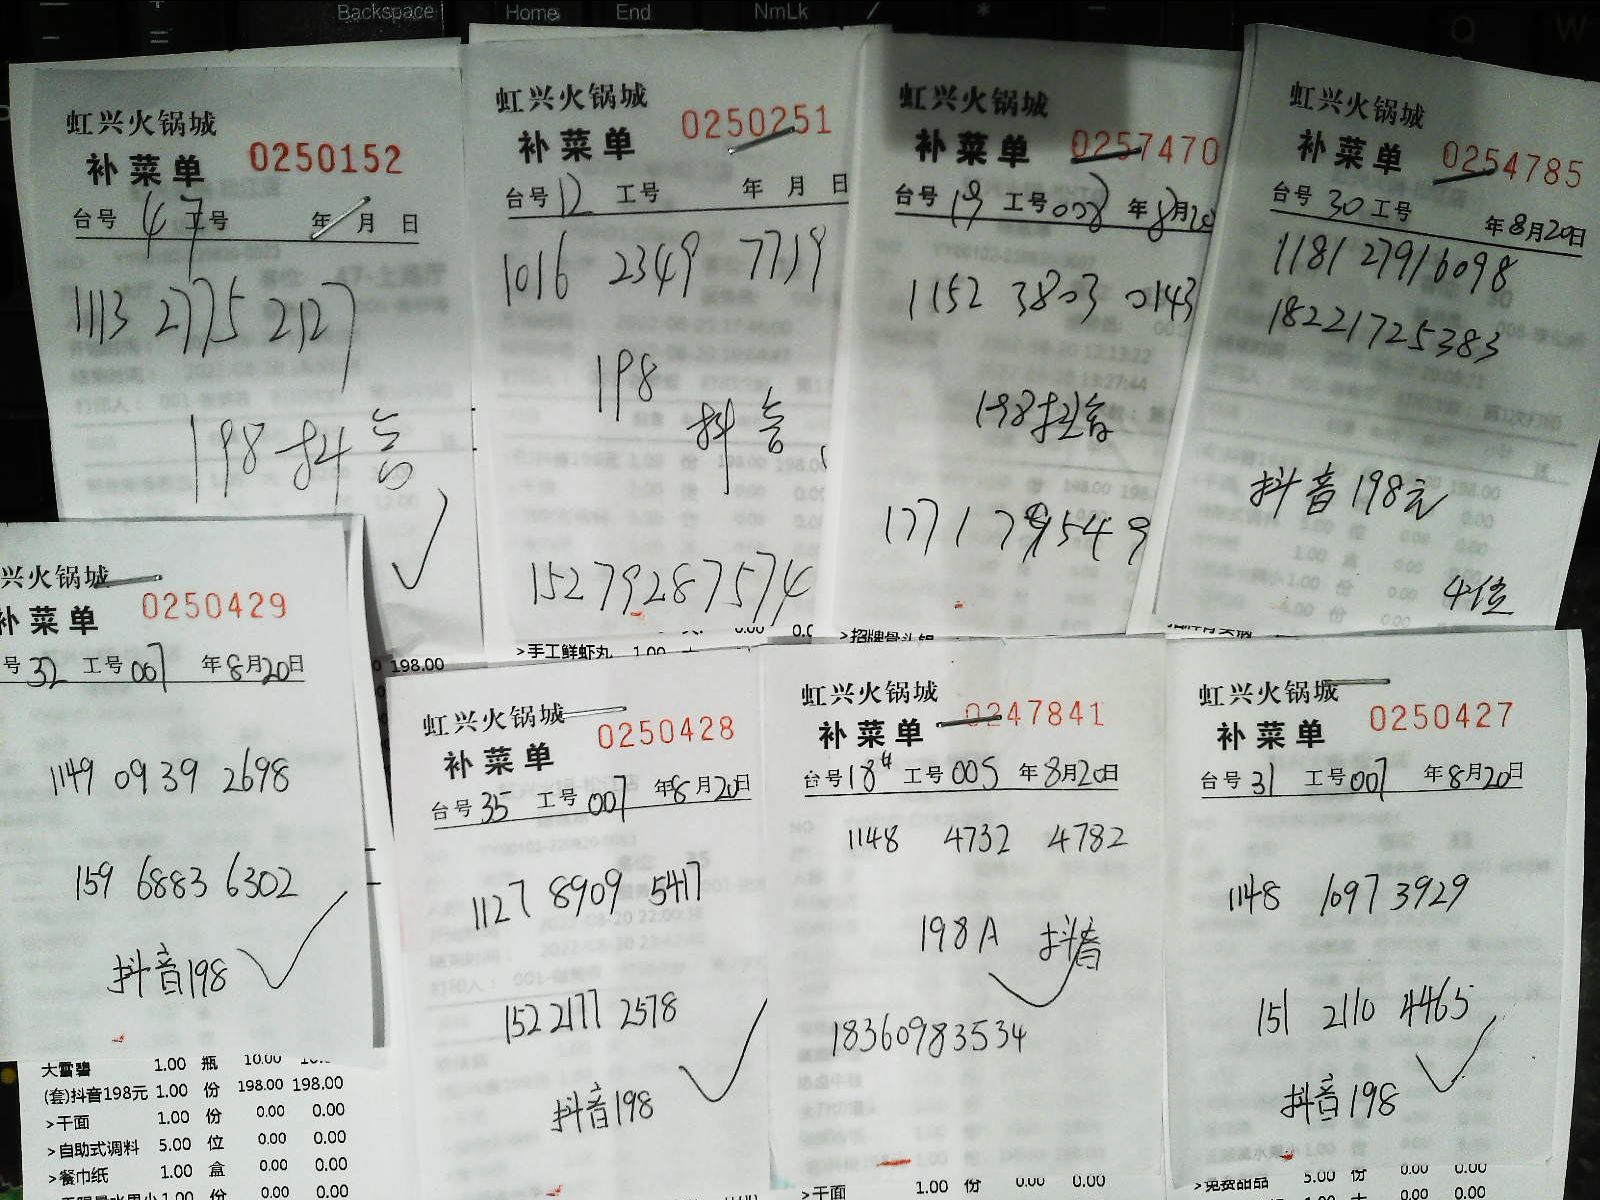 Backspace Home End NmLk
虹兴火锅城
补菜单 0250152
台号 47 工号 年 月 日
1113 2775 2127
198 抖音
虹兴火锅城
补菜单 0250251
台号 12 工号 年 月 日
1016 2349 7719
198
抖音
15279287574
虹兴火锅城
补菜单 0257470
台号 19 工号 008 年 8月20
1152 3803 0143
198抖音
虹兴火锅城
补菜单 0254785
台号 30 工号 年 8月20日
1181 27916098
18221725383
抖音198元
4位
兴火锅城
补菜单 0250429
号 32 工号 007 年8月20日
1149 0939 2698
159 6883 6302
抖音198
大雪碧 1.00 瓶 10.00
(套)抖音198元 1.00 份 198.00 198.00
>干面 1.00 份 0.00 0.00
>自助式调料 5.00 位 0.00 0.00
>餐巾纸 1.00 盒 0.00 0.00
1.00 份 0.00 0.00
198.00
>手工鲜虾丸 1.00
虹兴火锅城
补菜单 0250428
台号 35 工号 007 年8月20日
1127 8909 5417
152 2177 2578
抖音198
>招牌骨头锅
虹兴火锅城
补菜单 0247841
台号 18 工号 005 年8月20日
1148 4732 4782
198A 抖音
18360983534
>干面 1.00 份 0.00 0.00
虹兴火锅城
补菜单 0250427
台号 31 工号 007 年8月20日
1148 1097 3929
151 2110 4465
抖音198
>免费甜品 5.00 份 0.00 0.00